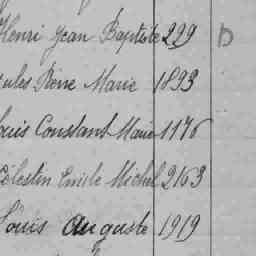 Henri Jean Baptiste 229 D
Jules Pierre Marie 1893
Louis Constant Marie 1176
Célestin Emile Michel 2163
Louis Auguste 1919